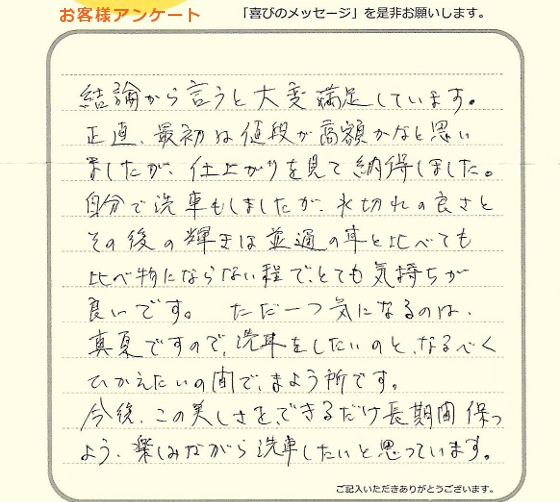 お客様アンケート
「喜びのメッセージ」を是非お願いします。
結論から言うと大変満足しています。
正直、最初は値段が高額かなと思い
ましたが、仕上がりを見て納得しました。
自分で洗車もしましたが、水切れの良さと
その後の輝きは普通の車と比べても
比べ物にならない程で、とても気持ちが
良いです。 ただ一つ気になるのは、
真夏ですので、洗車をしたいのと、なるべく
ひかえたいの間で、まよう所です。
今後、この美しさを、できるだけ長期間保つ
よう、楽しみながら洗車したいと思っています。
ご記入いただきありがとうございます。